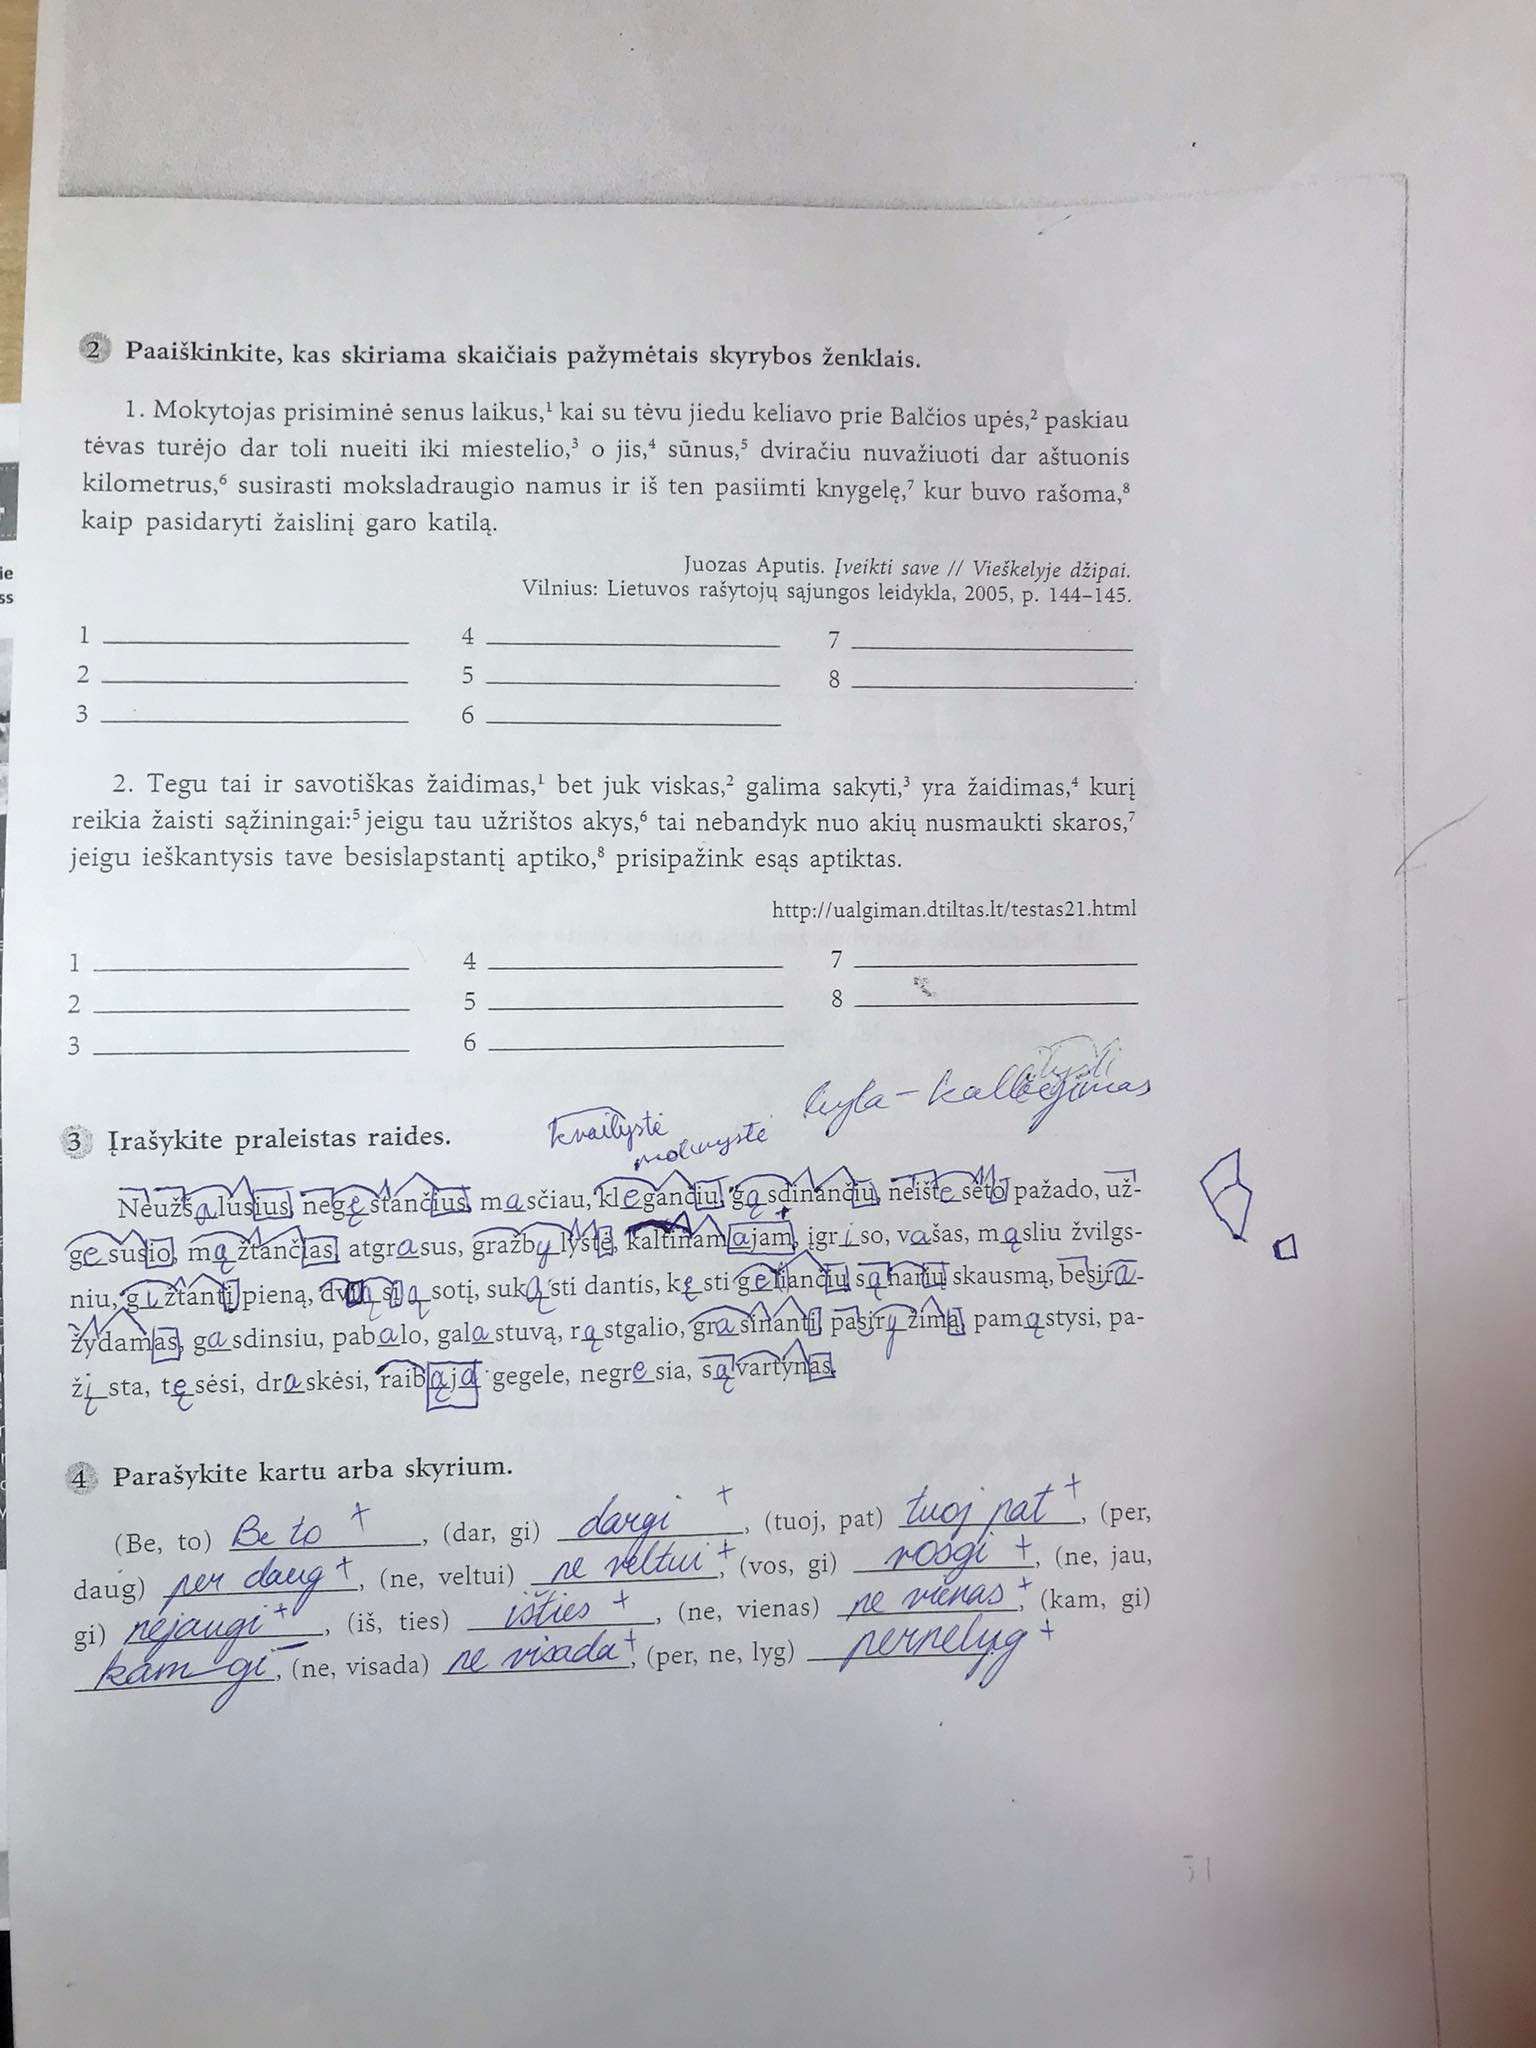 2 Paaiškinkite, kas skiriama skaičiais pažymėtais skyrybos ženklais.
1. Mokytojas prisiminė senus laikus,¹ kai su tėvu jiedu keliavo prie Balčios upės,² paskiau
tėvas turėjo dar toli nueiti iki miestelio,³ o jis,⁴ sūnus,⁵ dviračiu nuvažiuoti dar aštuonis
kilometrus,⁶ susirasti moksladraugio namus ir iš ten pasiimti knygelę,⁷ kur buvo rašoma,⁸
kaip pasidaryti žaislinį garo katilą.
Juozas Aputis. Įveikti save // Vieškelyje džipai.
Vilnius: Lietuvos rašytojų sąjungos leidykla, 2005, p. 144–145.
1 4 7
2 5 8
3 6
2. Tegu tai ir savotiškas žaidimas,¹ bet juk viskas,² galima sakyti,³ yra žaidimas,⁴ kurį
reikia žaisti sąžiningai:⁵ jeigu tau užrištos akys,⁶ tai nebandyk nuo akių nusmaukti skaros,⁷
jeigu ieškantysis tave besislapstantį aptiko,⁸ prisipažink esąs aptiktas.
http://ualgiman.dtiltas.lt/testas21.html
1 4 7
2 5 8
3 6
kvailystė
3 Įrašykite praleistas raides.
Neužšalusius, negęstančius, masčiau, klegančių, gąsdinančių, neištesėto pažado, už-
gesusio, mąžtančias, atgrasus, gražbylystė, kaltinamajam, įgriso, vašas, mąsliu žvilgs-
niu, gižtantį pieną, sotį, sukąsti dantis, kęsti geliančių sąnarių skausmą, besirą-
žydamas, gasdinsiu, pabalo, galastuvą, rąstgalio, grasinantį, pasiryžimą, pamąstysi, pa-
žįsta, tęsėsi, draskėsi, raibąją gegelę, negresia, sąvartynas.
4 Parašykite kartu arba skyrium.
(Be, to) Be to +, (dar, gi) dargi +, (tuoj, pat) tuoj pat +, (per,
daug) per daug +, (ne, veltui) ne veltui +, (vos, gi) vosgi +, (ne, jau,
gi) nejaugi +, (iš, ties) išties +, (ne, vienas) ne vienas +, (kam, gi)
kam gi –, (ne, visada) ne visada +, (per, ne, lyg) pernelyg +